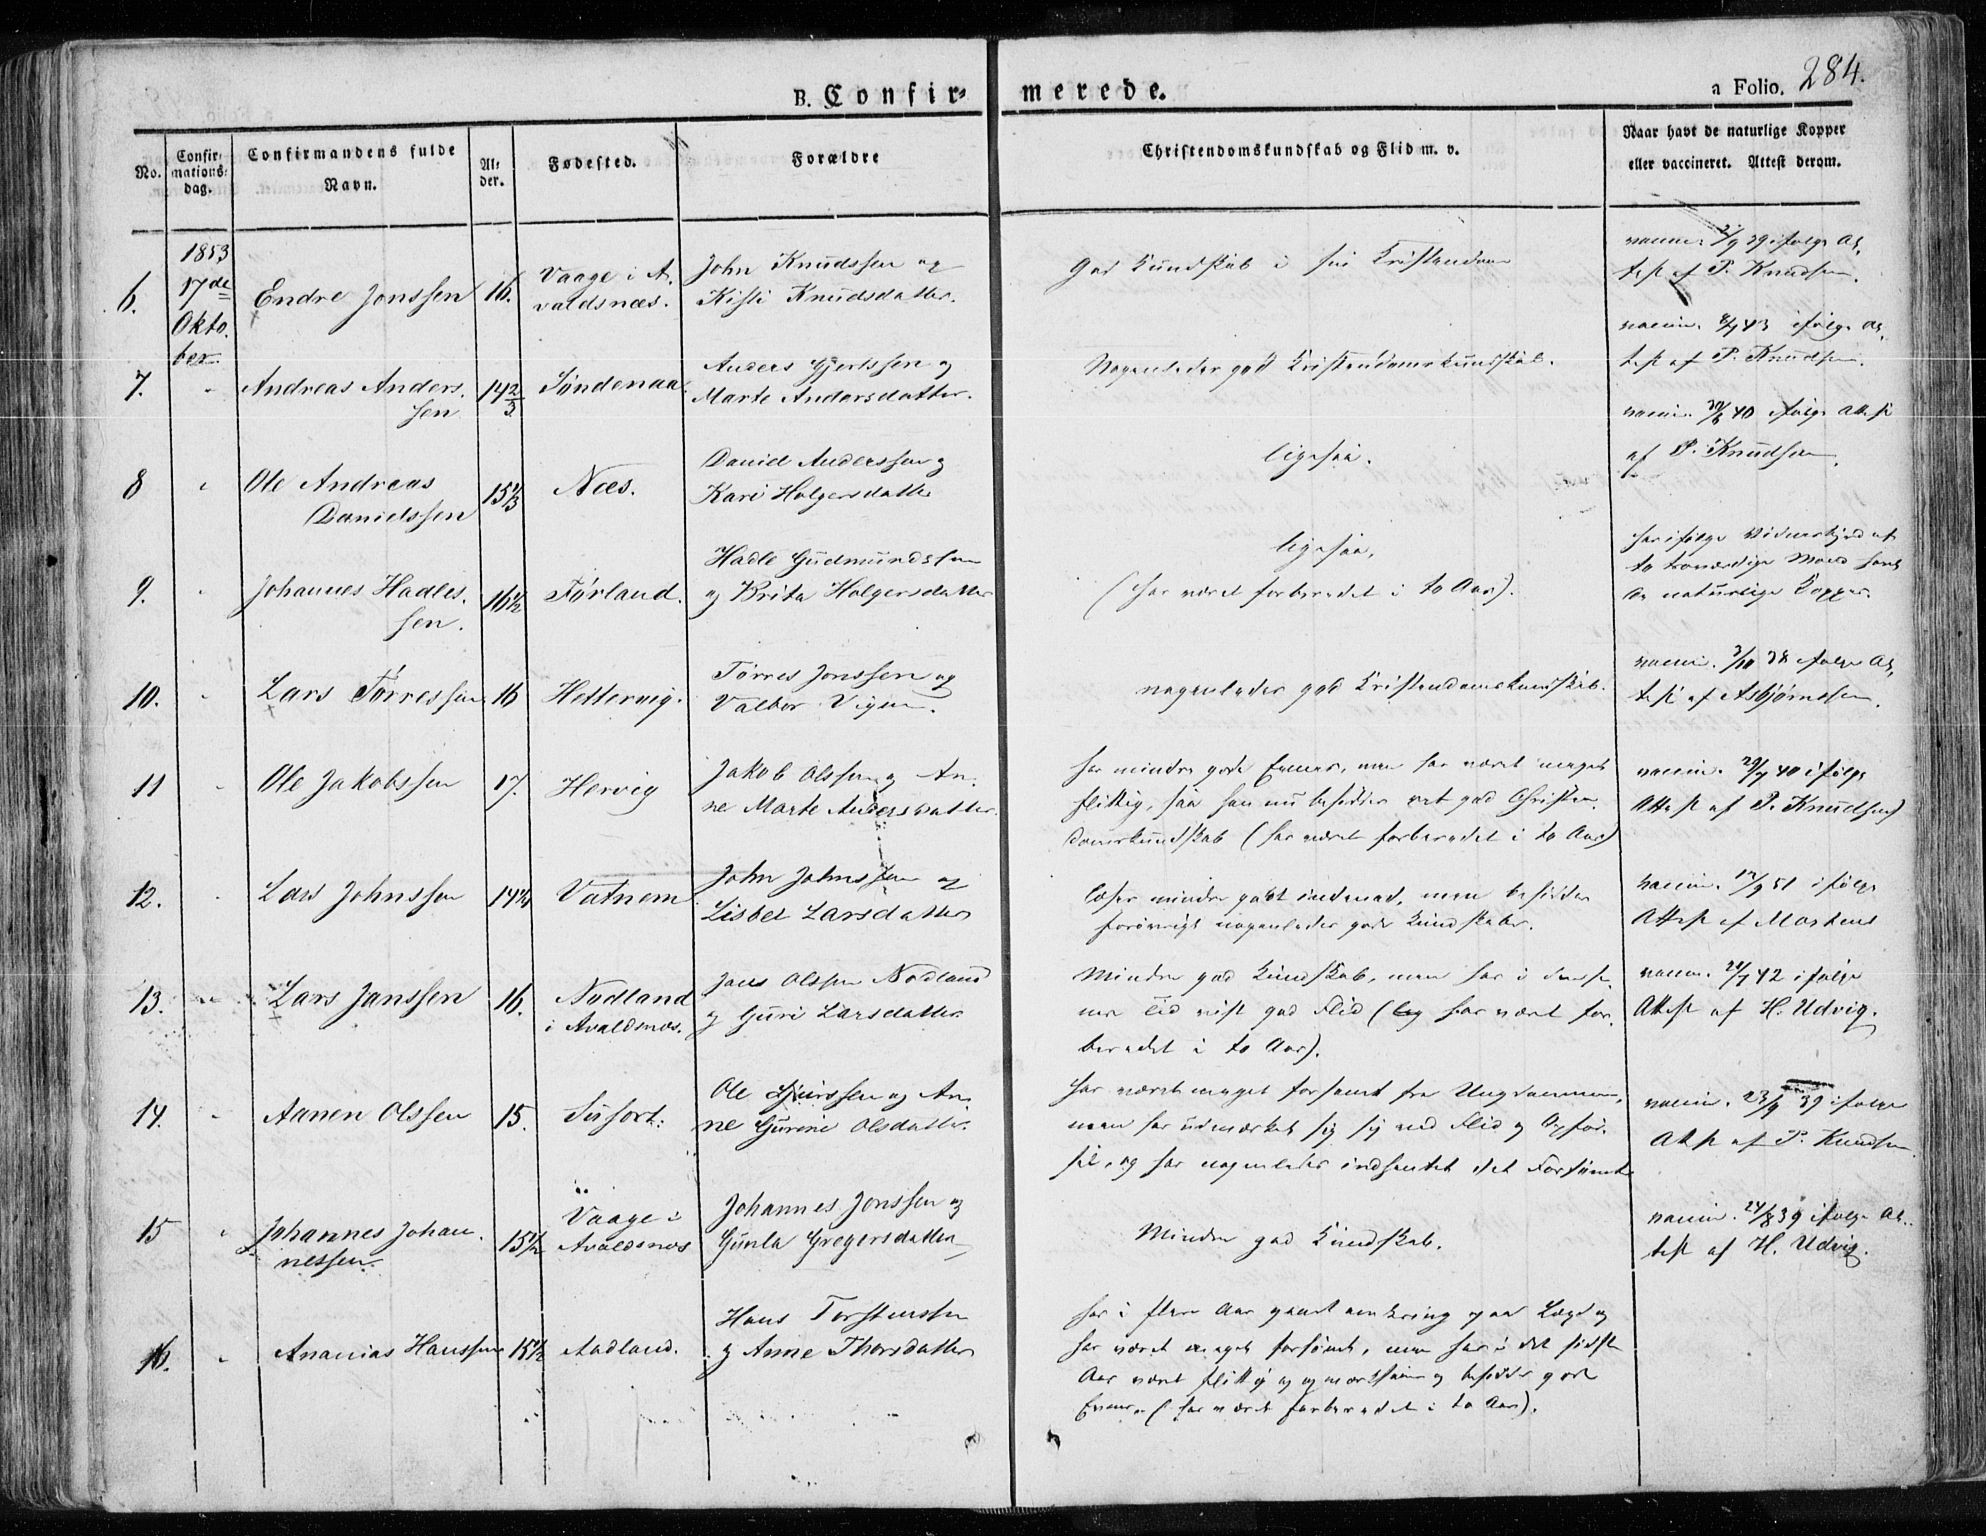 B. Confir- merede.
a Folio. 284.
No.
Confir-
mations-
dag.
Confirmandens fulde
Navn.
Al-
der.
Fødested.
Forældre
Christendomskundskab og Flid m. v.
Naar havt de naturlige Kopper
eller vaccineret. Attest derom.
1853
17de
Okto-
ber.
6.
Endre Jonssen
16.
Vaage i A-
valdsnæs.
John Knudssen og
Kisti Knudsdatter.
God Kundskab i sin Kristendom
vaccin. 39 ifølge At-
test af P. Knudsen.
7.
Andreas Anders-
sen
14 2/3
Søndenaa.
Anders Gjertssen og
Marte Andersdatter.
Nogenledes god Kristendomskundskab.
vaccin. 8/9 43 ifølge At-
test af P. Knudsen.
8
Ole Andreas
Danielssen
15 1/3
Næs.
Daniel Anderssen og
Kari Holgersdatter
ligesaa.
vaccin. 40 ifølge Attest
af P. Knudsen.
9.
Johannes Hadles-
sen.
16 1/2
Førland.
Hadle Gudmundssen
og Brita Holgersdatter
ligesaa,
(har været forberedet i to Aar).
har ifølge Vidnesbyrd af
to troværdige Mænd havt
de naturlige Kopper.
10.
Lars Tørressen
16
Hettervig.
Tørres Jonssen og
Valbor
nogenledes god Kristendomskundskab.
vaccin. 3/10 38 ifølge At-
test af Asbjørnssen.
11
Ole Jakobssen
17.
Hervig
Jakob Olssen og An-
ne Marte Andersdatter.
har mindre gode Evner, men har været meget
flittig, saa han nu besidder ret god Christen-
domskundskab (har været forberedet i to Aar)
vaccin. 29/7 40 ifølge
Attest af P. Knudsen
12.
Lars Johnssen
14 3/4
Vatnem
John Johnssen og
Lisbet Larsdatter
læser mindre godt indenad, men besidder
forøvrigt nogenledes gode Kundskaber.
vaccin. 51 ifølge
Attest af Mortens
13.
Lars Janssen
16.
Nodland
i Avaldsnæs.
Jans Olssen Nodland
og Guri Larsdatter
Mindre god Kundskab, men har i den se-
nere Tid vist god Flid ( har været for-
beredet i to Aar).
vaccin. 42 ifølge
Attest af H. Udvig.
14.
Aanen Olssen
15.
Ole Sjurssen og An-
ne Gurine Olsdatter.
har været meget forsømt fra Ungdommen,
men har udmærket sig ved Flid og Opfør-
sel, og har nogenledes indhentet det Forsømte
vaccin. 23/9 39 ifølge
Attest af P. Knudsen.
15
Johannes Johan-
nessen.
15 1/2
Vaage i
Avaldsnæs
Johannes Jonssen og
Gunla Gregersdatter
Mindre god Kundskab.
vaccin. 24/8 39 ifølge At-
test af H. Udvig.
16.
Ananias Hanssen
15 1/2
Aadland.
Hans Torstenssen
og Anne Thorsdatter
har i flere Aar gaaet omkring paa Lægd og
har været meget forsømt, men har i det sidste
Aar været flittig og opmærksom og besidder gode
Evner. (har været forberedet i to Aar).